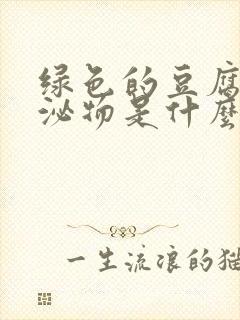 绿色的豆腐
泌物是什麼
一生流浪的猫